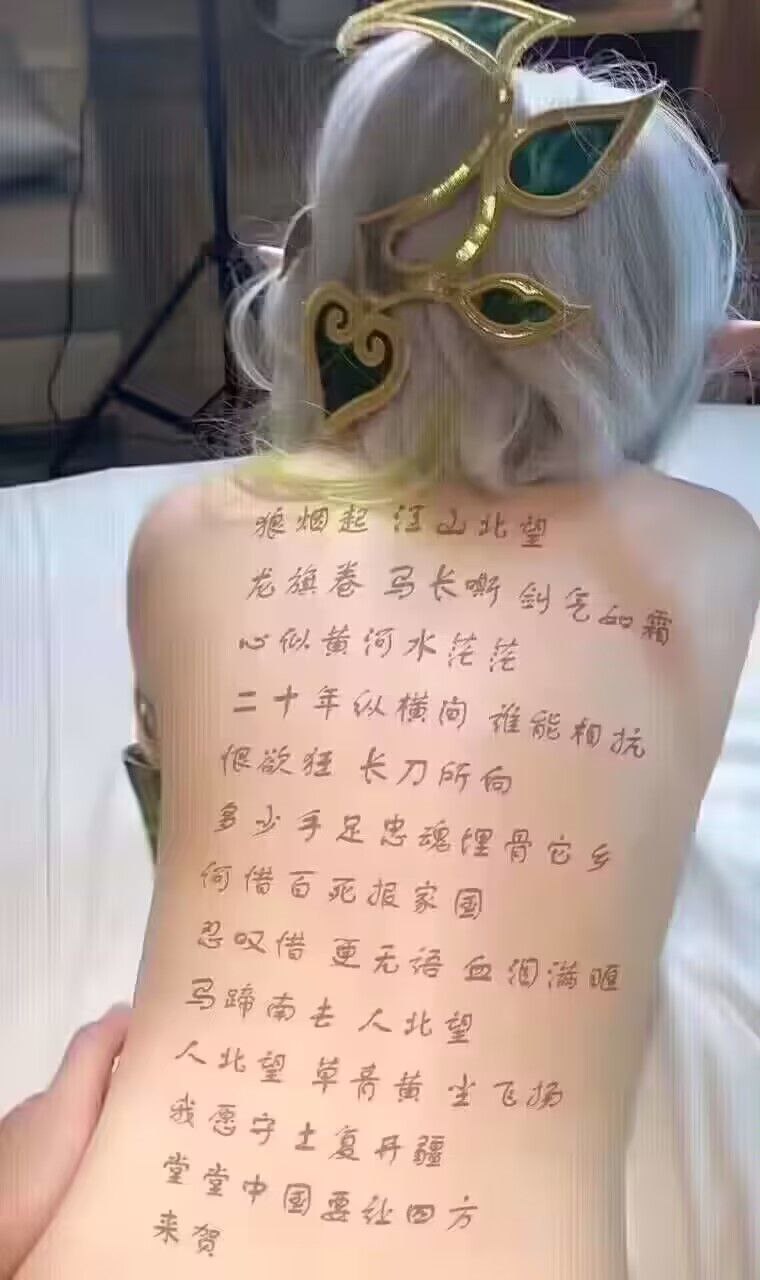 狼烟起 江山北望
龙旗卷 马长嘶 剑气如霜
心似黄河水茫茫
二十年纵横间 谁能相抗
恨欲狂 长刀所向
多少手足忠魂埋骨它乡
何惜百死报家国
忍叹惜 更无语 血泪满眶
马蹄南去 人北望
人北望 草青黄 尘飞扬
我愿守土复开疆
堂堂中国要让四方
来贺